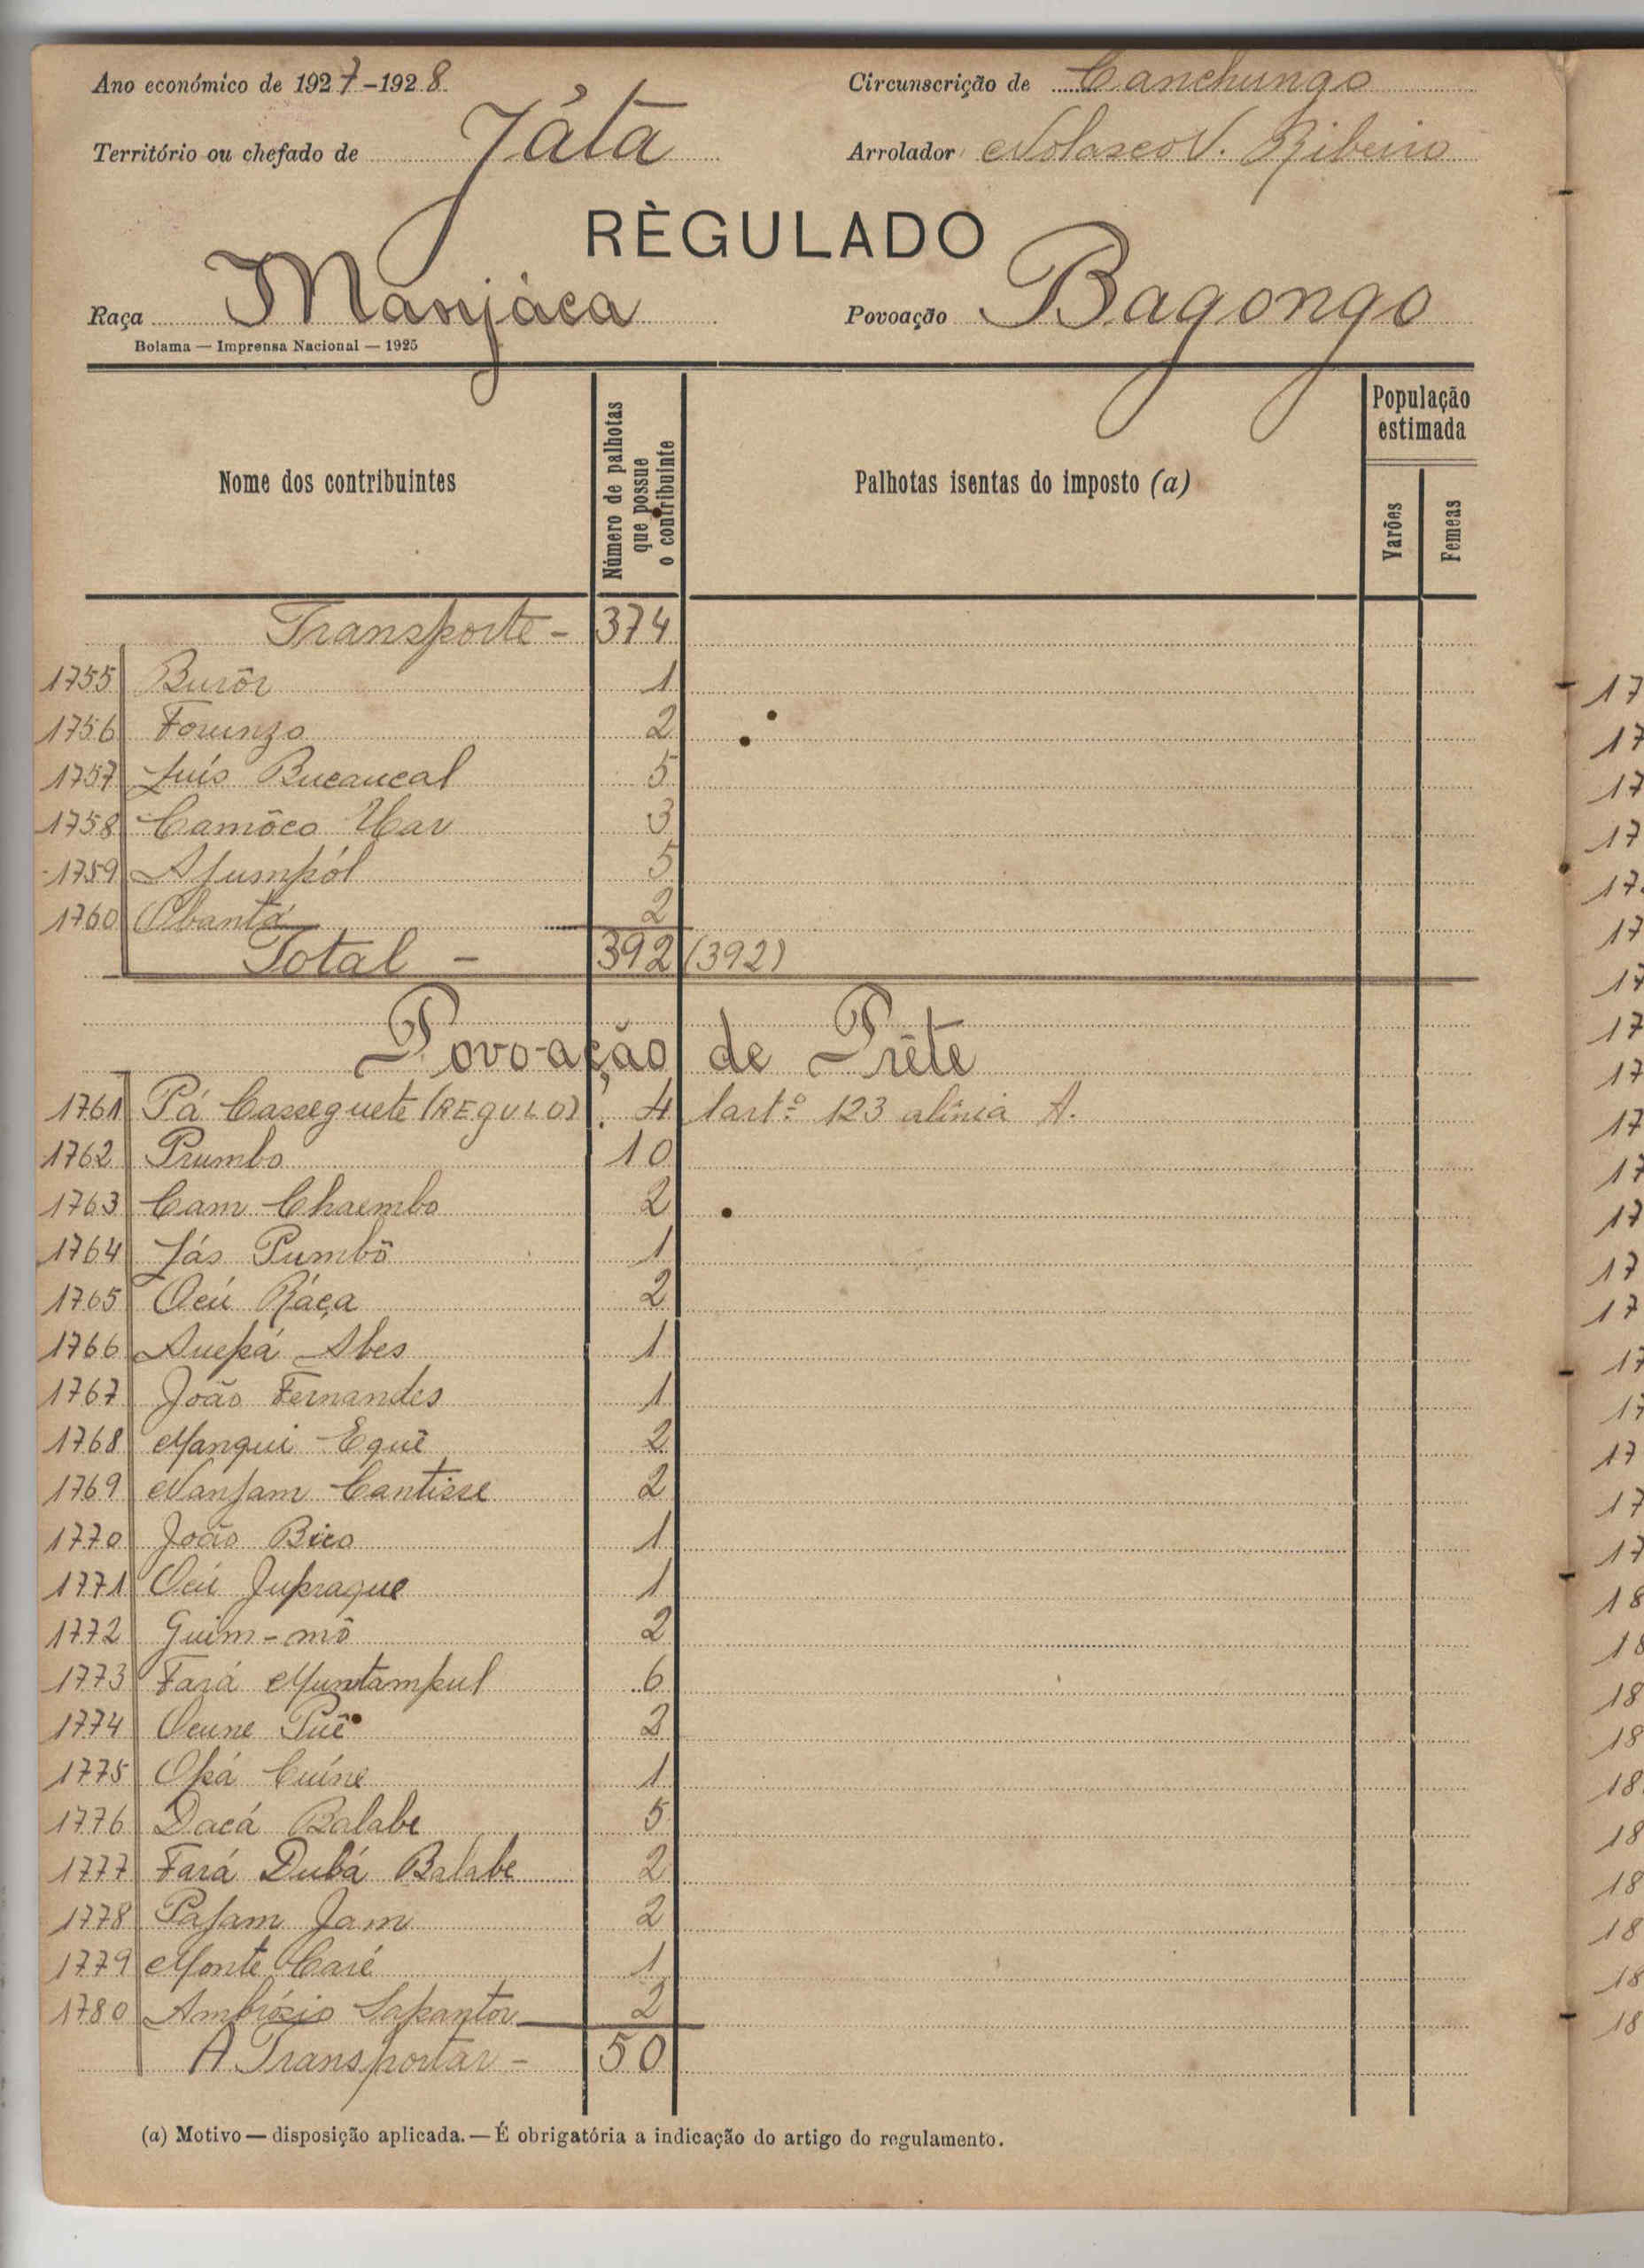 Ano económico de 1927-1928.
Circunscrição de Canchungo
Território ou chefado de Játa
Arrolador Nolasco V. Ribeiro
RÈGULADO
Raça Manjáca
Povoação Bagongo
Bolama — Imprensa Nacional — 1925
Nome dos contribuintes
Número de palhotas que possue o contribuinte
Palhotas isentas do imposto (a)
População estimada
Varões
Femeas
Transporte - 374
1755 Burôr 1
1756 Forunzo 2
1757 Luís Bucaucal 5
1758 Camôco Uar 3
1759 Afumpól 5
1760 Obantá 2
Total - 392 (392)
Povoação de Prête
1761 Pá Casseguete (REGULO) 4 art.º 123 alínia A.
1762 Prumbo 10
1763 Cam Chaembo 2
1764 Jás Pumbô 1
1765 Ocú Ráça 2
1766 Auepá Abes 1
1767 João Fernandes 1
1768 Mangui Eguê 2
1769 Nanfam Cantisse 2
1770 João Bico 1
1771 Ocú Jupraque 1
1772 Guim-mô 2
1773 Fará Muntampul 6
1774 Ocune Puê 2
1775 Opá Cuíne 1
1776 Dacá Balabe 5
1777 Fará Dubá Balabe 2
1778 Pafam Jam 2
1779 Monte Caré 1
1780 Ambrózio Sapantor 2
A Transportar - 50
(a) Motivo — disposição aplicada. — É obrigatória a indicação do artigo do regulamento.